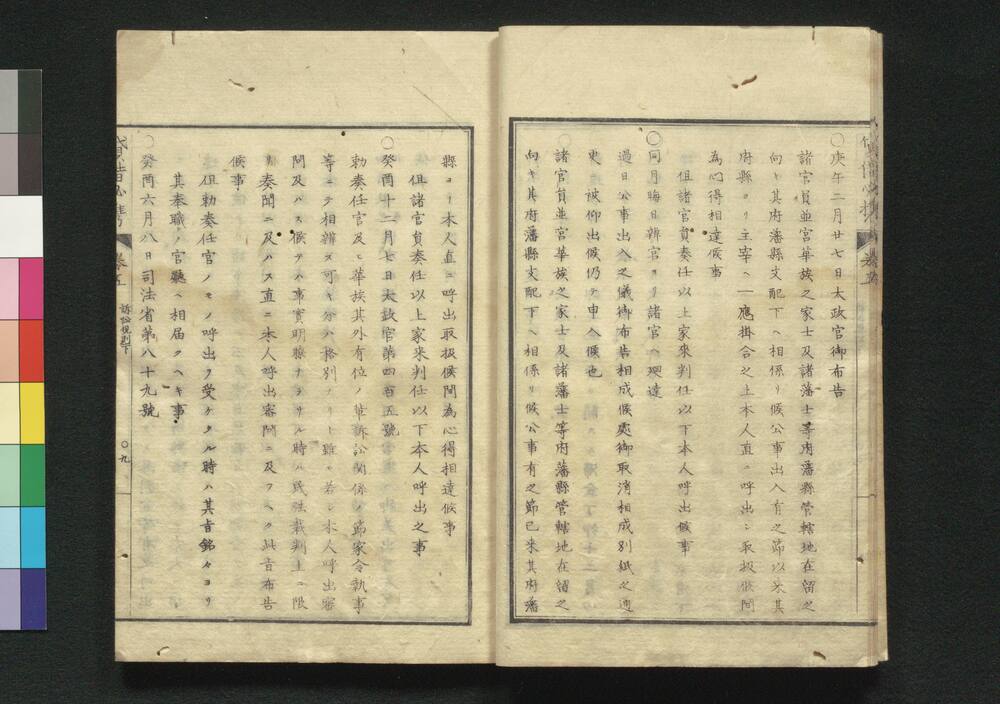 〇庚午二月廿七日太政官御布告
諸官員並宮華族之家士及諸藩士等府藩縣管轄地在留之
向ヲ其府藩縣支配下ヘ相係リ候公事出入有之節以来其
府縣ヨリ主宰ヘ一應掛合之上本人直ニ呼出シ取扱候間
為心得相達候事
〇同月晦日辨官ヨリ諸官ヘ廻達
但諸官員奏任以上家来判任以下本人呼出候事
過日公事出入之儀御布告相成候處御取消相成別紙之通
更ニ被仰出候仍テ申入候也
諸官員並宮華族之家士及諸藩士等府藩縣管轄地在留之
向ヲ其府藩縣支配下ヘ相係リ候公事有之節已来其府藩
縣ヨリ本人直ニ呼出取扱候間為心得相達候事
但諸官員奏任以上家来判任以下本人呼出之事
〇癸酉十二月七日太政官第四百五號
勅奏任官及ヒ華族其外有位ノ輩訴訟関係ノ節家令執事
等ニテ相辨ス可キ分ハ格別ナリト雖モ若シ本人呼出審
問及ハス候テハ事實明瞭ナラサル時ハ民法裁判上ニ限
リ奏聞ニ及ハス直ニ本人呼出審問ニ及フヘク此旨布告
候事
但勅奏任官ノモノ呼出ヲ受ケタル時ハ其旨銘々ヨリ
其奉職ノ官廳ヘ相届クヘキ事
〇癸酉六月八日司法省第八十九號
貸借必携
巻五
訴訟規則下
〇九